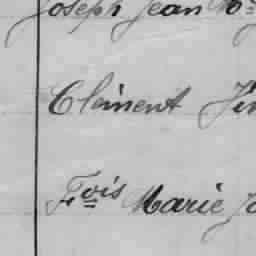 Joseph Jean
Clément
Fois Marie